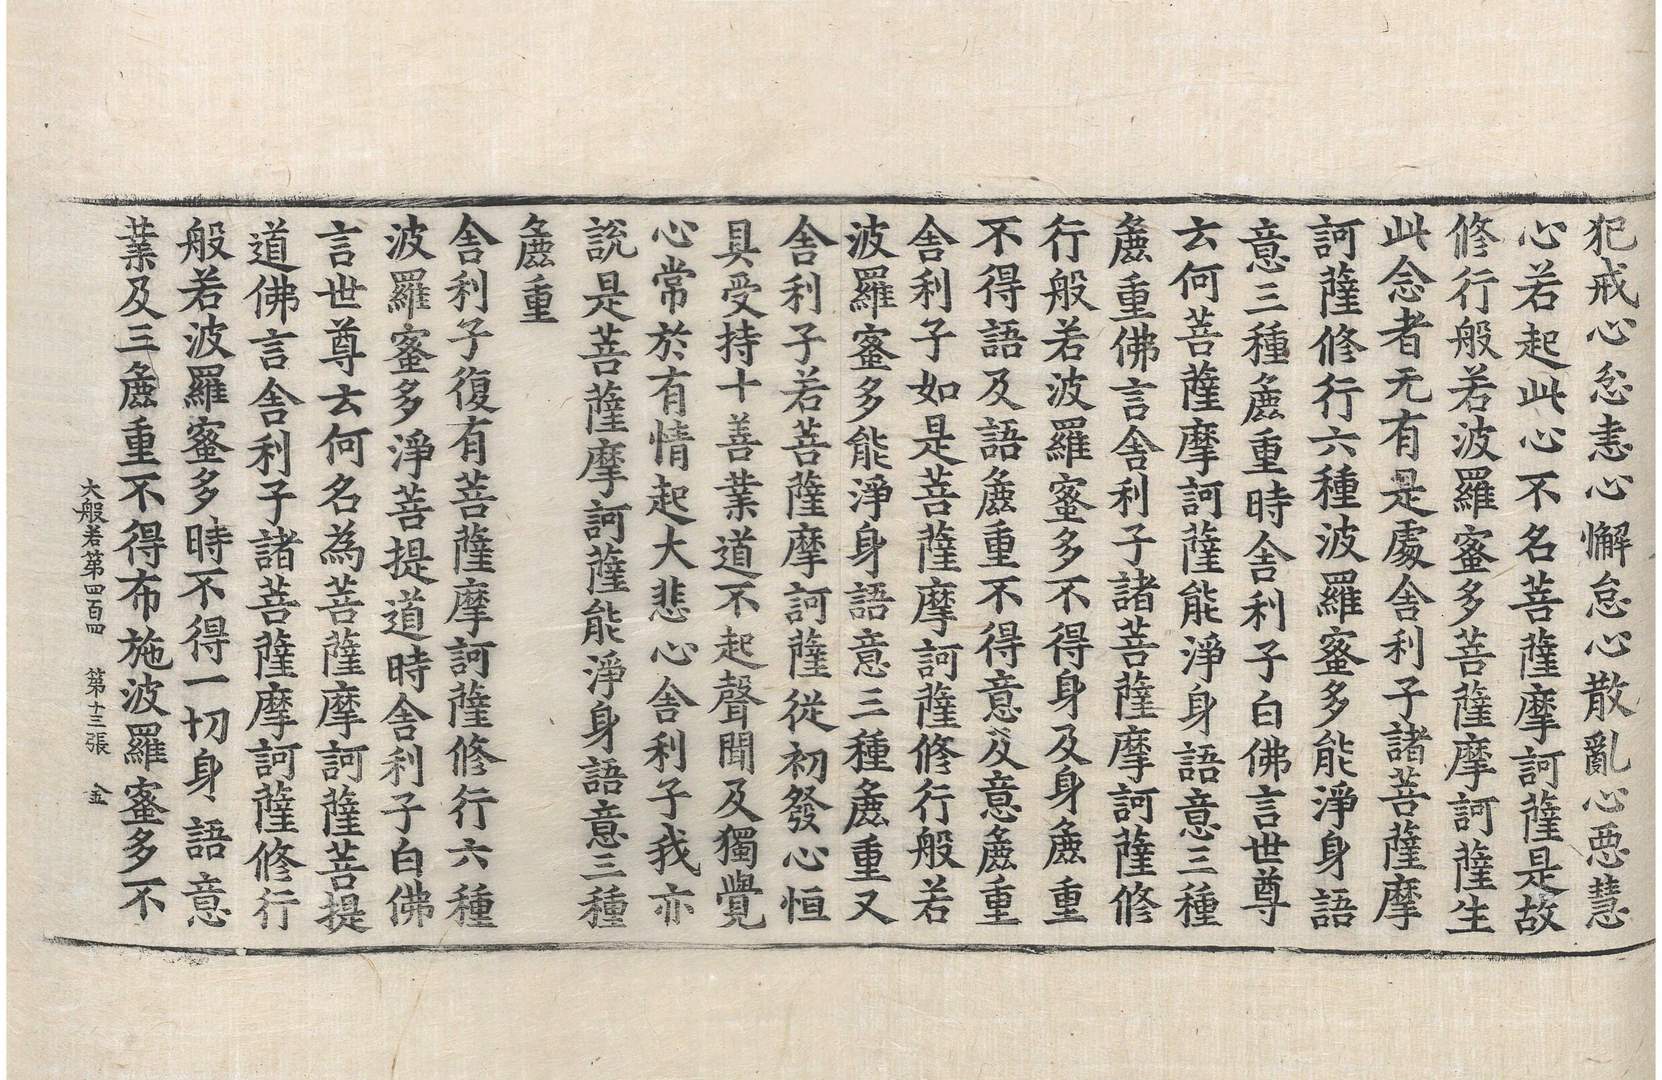 犯戒心忿恚心懈怠心散亂心惡慧
心若起此心不名菩薩摩訶薩是故
修行般若波羅蜜多菩薩摩訶薩生
此念者无有是處舍利子諸菩薩摩
訶薩修行六種波羅蜜多能淨身語
意三種麁重時舍利子白佛言世尊
云何菩薩摩訶薩能淨身語意三種
麁重佛言舍利子諸菩薩摩訶薩修
行般若波羅蜜多不得身及身麁重
不得語及語麁重不得意及意麁重
舍利子如是菩薩摩訶薩修行般若
波羅蜜多能淨身語意三種麁重又
舍利子若菩薩摩訶薩從初發心恒
具受持十善業道不起聲聞及獨覺
心常於有情起大悲心舍利子我亦
說是菩薩摩訶薩能淨身語意三種
麁重
舍利子復有菩薩摩訶薩修行六種
波羅蜜多淨菩提道時舍利子白佛
言世尊云何名為菩薩摩訶薩菩提
道佛言舍利子諸菩薩摩訶薩修行
般若波羅蜜多時不得一切身語意
業及三麁重不得布施波羅蜜多不
大般若第四百四　第十三張　金